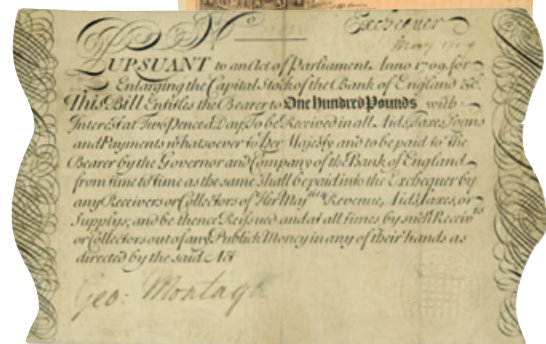 Exchequer
May 1709
PURSUANT to an Act of Parliament Anno 1709. for
Enlarging the Capital Stock of the Bank of England &c.
This Bill Entitles the Bearer to One Hundred Pounds with
Interest at Two Pence a Day, To be Received in all Aids, Taxes, Loans
and Payments whatsoever to Her Majesty and to be paid to the
Bearer by the Governor and Company of the Bank of England
from time to time as the same shall be paid into the Exchequer by
any Receivers or Collectors of Her Majties Revenue, Aids, Taxes, or
Supplys; and be thence Reissued and at all times by such Receivrs
or Collectors out of any Publick Money in any of their hands as
directed by the said Act
Geo: Montagu